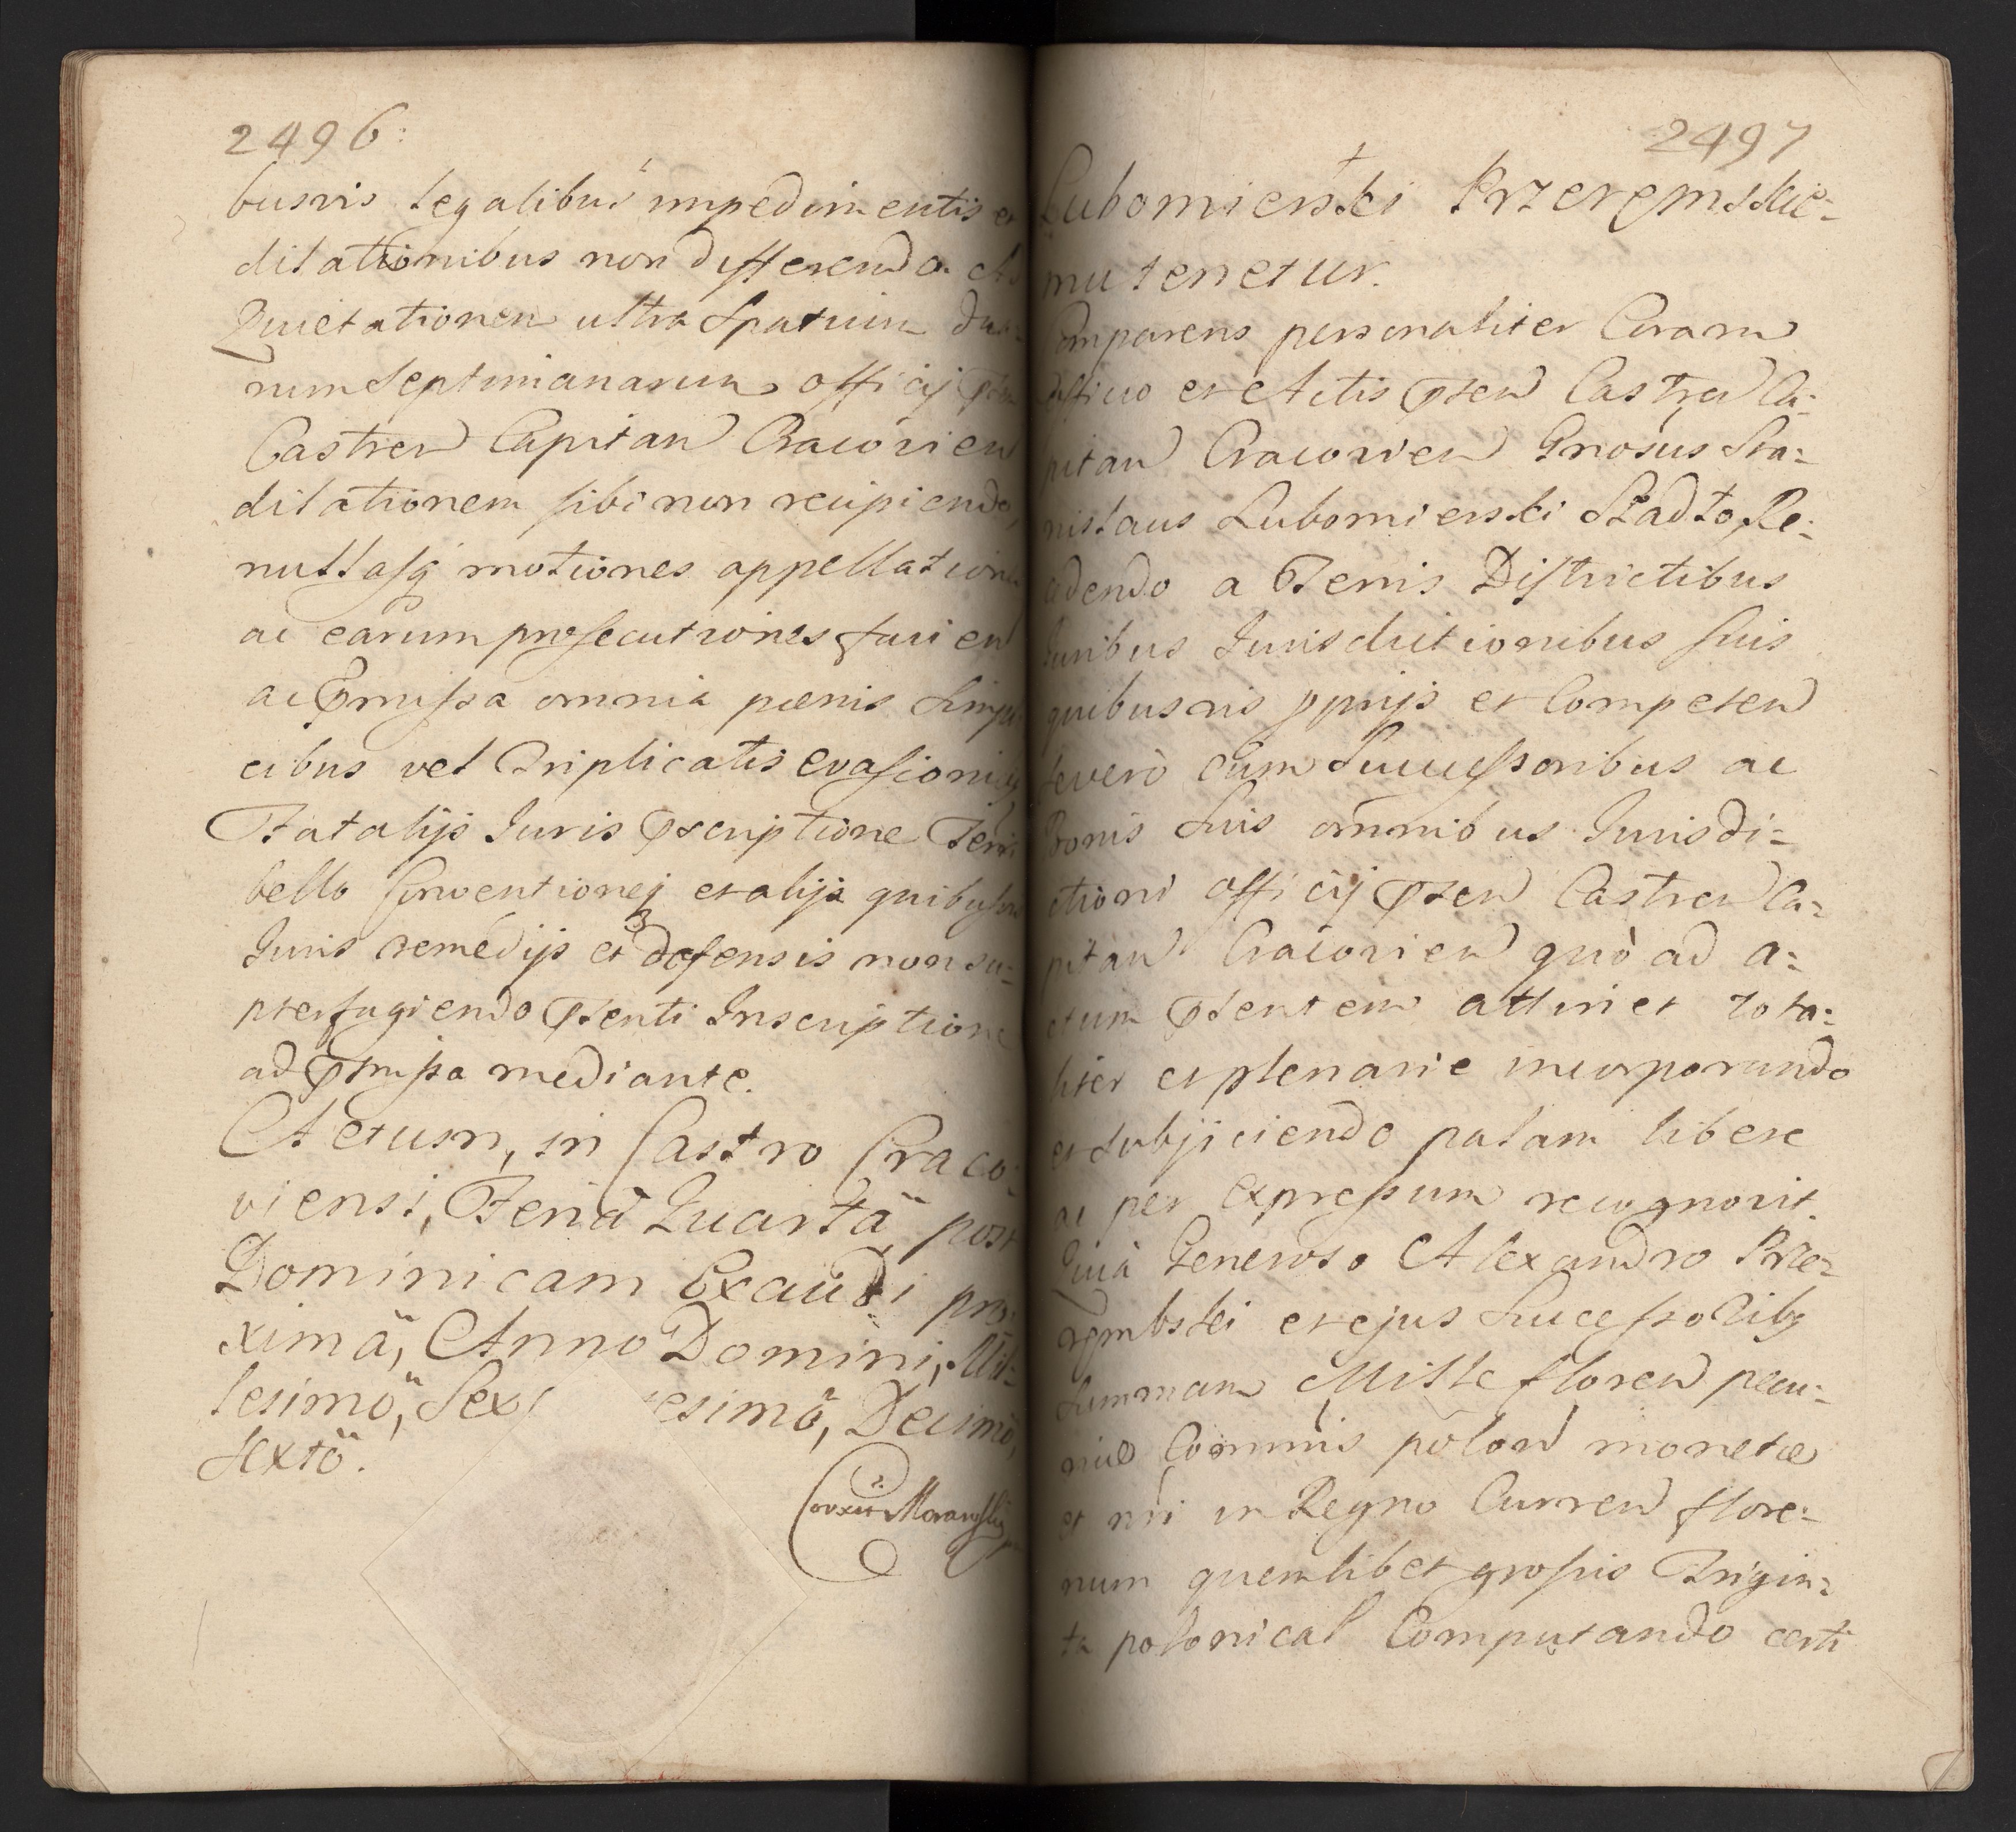 2496:
busvis legalibus impedimentis et
dilationibus non differendo Ac
Quietationem ultra Spatium dua-
rum Septimanarum officij Pñtem
Castren Capitan Cracovien
dilationem sibi non recipiendo,
nullasq motiones appellationes
ac earum prosecutiones facien
ac Pmissa omnia pœnis Simpli
cibus vel Triplicatis evasioniq
Fatalijs Iuris Pscriptione Terri
bello conventionej et alijs quibusvis
Iuris remedijs et defensis non su-
pterfugiendo Psenti Inscriptione
ad Pmissa mediante.
Actum, in Castro Craco-
viensi, Feria Quarta post
Dominicam Exaudi pro
xima, Anno Domini, Mil-
lesimo, Sex esimo, Decimo
sexto.
Corrxit
2497
Lubomierski Przerembskie-
mu tenetur.
Comparens personaliter Coram
officio et Actis Psen Castren Ca-
pitan Cracovien Gnosus Sta-
nislaus Lubomierski Szadło Re-
cedendo a Terris Districtibus
Iuribus Iurisdictionibus suis
quibusvis pprijs et Competen
se vero cum Successoribus ac
Bonis Suis omnibus Iurisdi-
ctioni officij Psen Castren Ca-
pitan Cracovien quò ad a-
ctum Psentem attinet tota-
liter et plenarie incorporando
et subijciendo palam libere
ac per expressum recognovit.
Quià Generoso Alexandro Prze-
rembski et ejus Sucessoribq
Summam Mille floren pecu-
niæ Commis polon monetæ
et nri in Regno Curren flore-
num quemlibet grossis Trigin-
ta polonical Computando certi